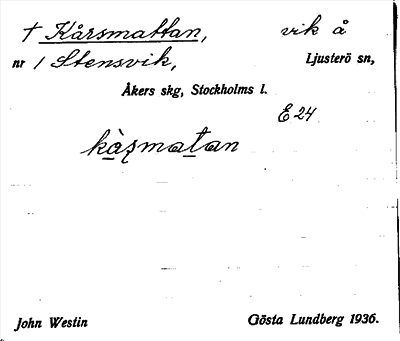 † Kårsmattan, vik å
nr 1 Stensvik, Ljusterö sn,
Åkers skg, Stockholms l.
E 24
kàşmatan
John Westin Gösta Lundberg 1936.